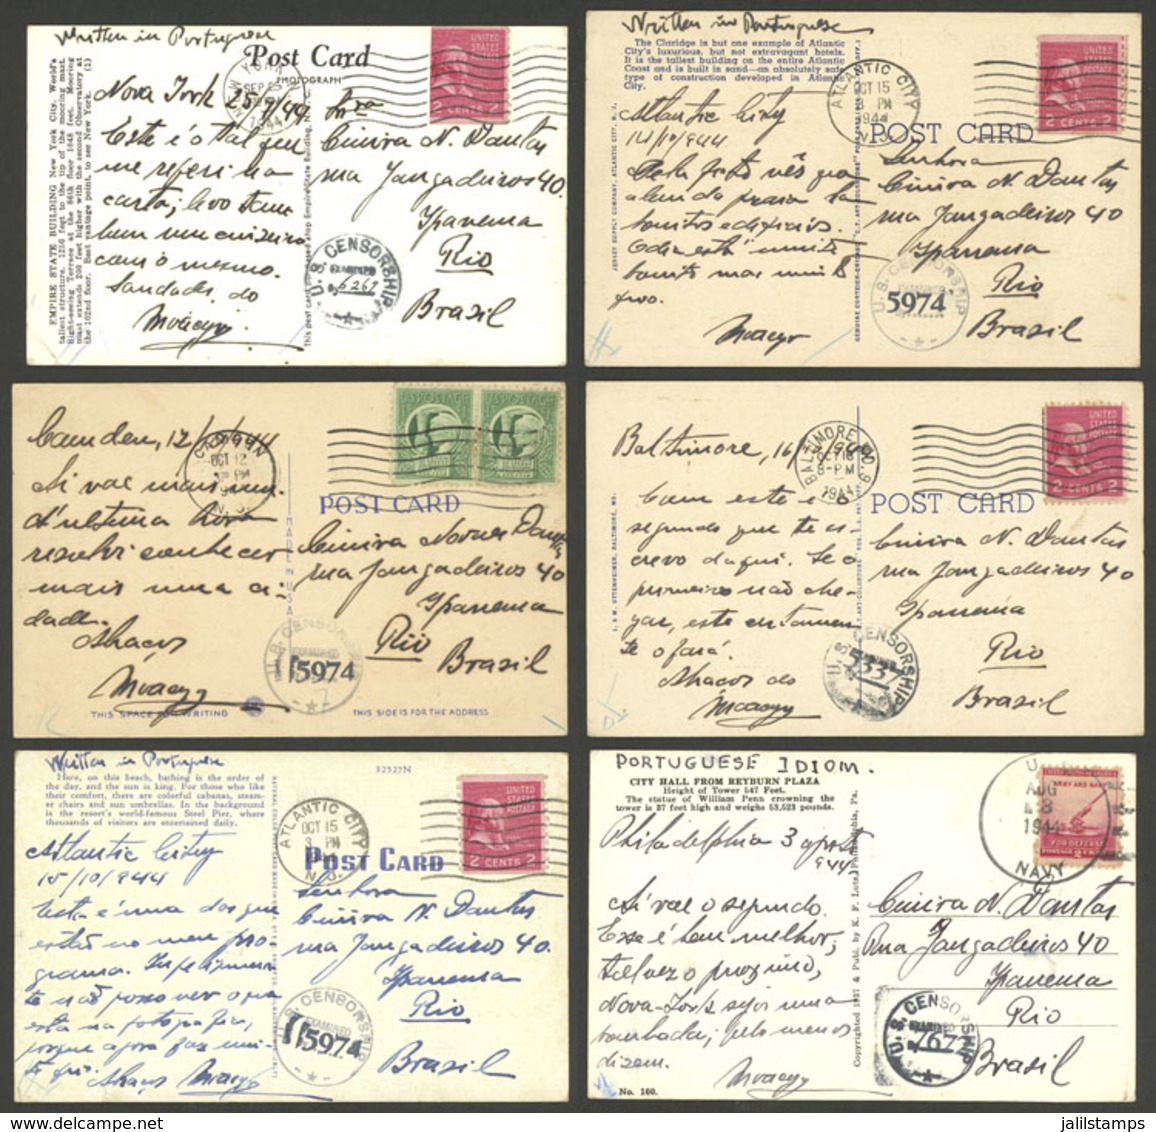 Written in Portuguese
Post Card
PHOTOGRAPH
EMPIRE STATE BUILDING New York City. World's
tallest structure. 1250 feet to the tip of the mooring mast.
Sight-seeing Terrace at the 86th floor 1048 feet. Mooring
mast extends 200 feet higher with the second Observatory at
the 102nd floor. Best vantage point, to see New York. (1)
NEW YORK
SEP 25
1944
UNITED
STATES
POSTAGE
2 CENTS 2
Nova York 25/9/944
Este é o tal que
me referi na
carta; levo tam
bem um cruzeiro
com o mesmo.
Saudades do
Moacyr
Sra
Cinira N. Dantas
rua Jangadeiros 40.
Ipanema
Rio
Brasil
U.S. CENSORSHIP
EXAMINED
BY 6261
Written in Portuguese
The Claridge is but one example of Atlantic
City's luxurious, but not extravagant hotels.
It is the tallest building on the entire Atlantic
Coast and is built in sand—an absolutely safe
type of construction developed in Atlantic
City.
JERSEY SUPPLY COMPANY, ATLANTIC CITY, N. J.
ATLANTIC CITY
OCT 15
PM
1944
N.J.
UNITED
STATES
POSTAGE
2 CENTS 2
POST CARD
Atlantic City
14/10/944
Pela foto vês que
alem da praia ha
bonitos edificios.
O dia está muito
bonito mas muito
frio.
Moacyr
Senhora
Cinira N. Dantas
rua Jangadeiros 40
Ipanema
Rio
Brasil
U.S. CENSORSHIP
EXAMINED
5974
Camden, 12/
CAMDEN
OCT 12
PM
N. J.
US POSTAGE
US POSTAGE
POST CARD
MADE IN U.S.A.
Ai vai mais um.
A' ultima hora
resolvi conhecer
mais uma ci-
dade.
Abraços
Moacyr
Cinira Novaes Dantas
rua Jangadeiros 40
Ipanema
Rio
Brasil
U.S. CENSORSHIP
EXAMINED
5974
THIS SPACE FOR WRITING
THIS SIDE IS FOR THE ADDRESS
Baltimore, 16/
BALTIMORE, MD.
OCT 16
8-PM
1944
UNITED
STATES
POSTAGE
2 CENTS 2
POST CARD
I. & M. OTTENHEIMER, BALTIMORE, MD.
Com este é o
segundo que te es
crevo daqui. Se o
primeiro não che-
gar, este certamen
te o fará.
Abraços do
Moacyr
Cinira N. Dantas
rua Jangadeiros 40
Ipanema
Rio
Brasil
U.S. CENSORSHIP
5337
Written in Portuguese
Here, on this beach, bathing is the order of
the day, and the sun is king. For those who like
their comfort, there are colorful cabanas, steam-
er chairs and sun umbrellas. In the background
is the resort's world-famous Steel Pier, where
thousands of visitors are entertained daily.
32527N
ATLANTIC CITY
OCT 15
3 PM
1944
N. J.
UNITED
STATES
POSTAGE
2 CENTS 2
POST CARD
Atlantic City
15/10/944
Esta é uma das que
estão no meu pro
grama. Infelizmen
te não posso ver o que
está na fotografia,
porque agora faz mui-
to frio.
Abraços Moacyr
Senhora
Cinira N. Dantas
rua Jangadeiros 40.
Ipanema
Rio
Brasil
U.S. CENSORSHIP
EXAMINED
5974
PORTUGUESE IDIOM.
CITY HALL FROM REYBURN PLAZA
Height of Tower 547 Feet.
The statue of William Penn crowning the
tower is 37 feet high and weighs 53,523 pounds.
Copyrighted 1937 & Publ. by K. F. Lutz, Philadelphia, Pa.
AUG
1944
NAVY
ARMY AND NAVY
FOR DEFENSE
Philadelphia 3 agosto
944
Ai vai o segundo.
Esse é bem melhor;
talvez o proximo,
Nova-York seja uma
bombada; pelo menos
dizem.
Moacyr
Cinira N. Dantas
Rua Jangadeiros 40
Ipanema
Rio
Brasil
U.S. CENSORSHIP
EXAMINED
No. 100.
jalilstamps